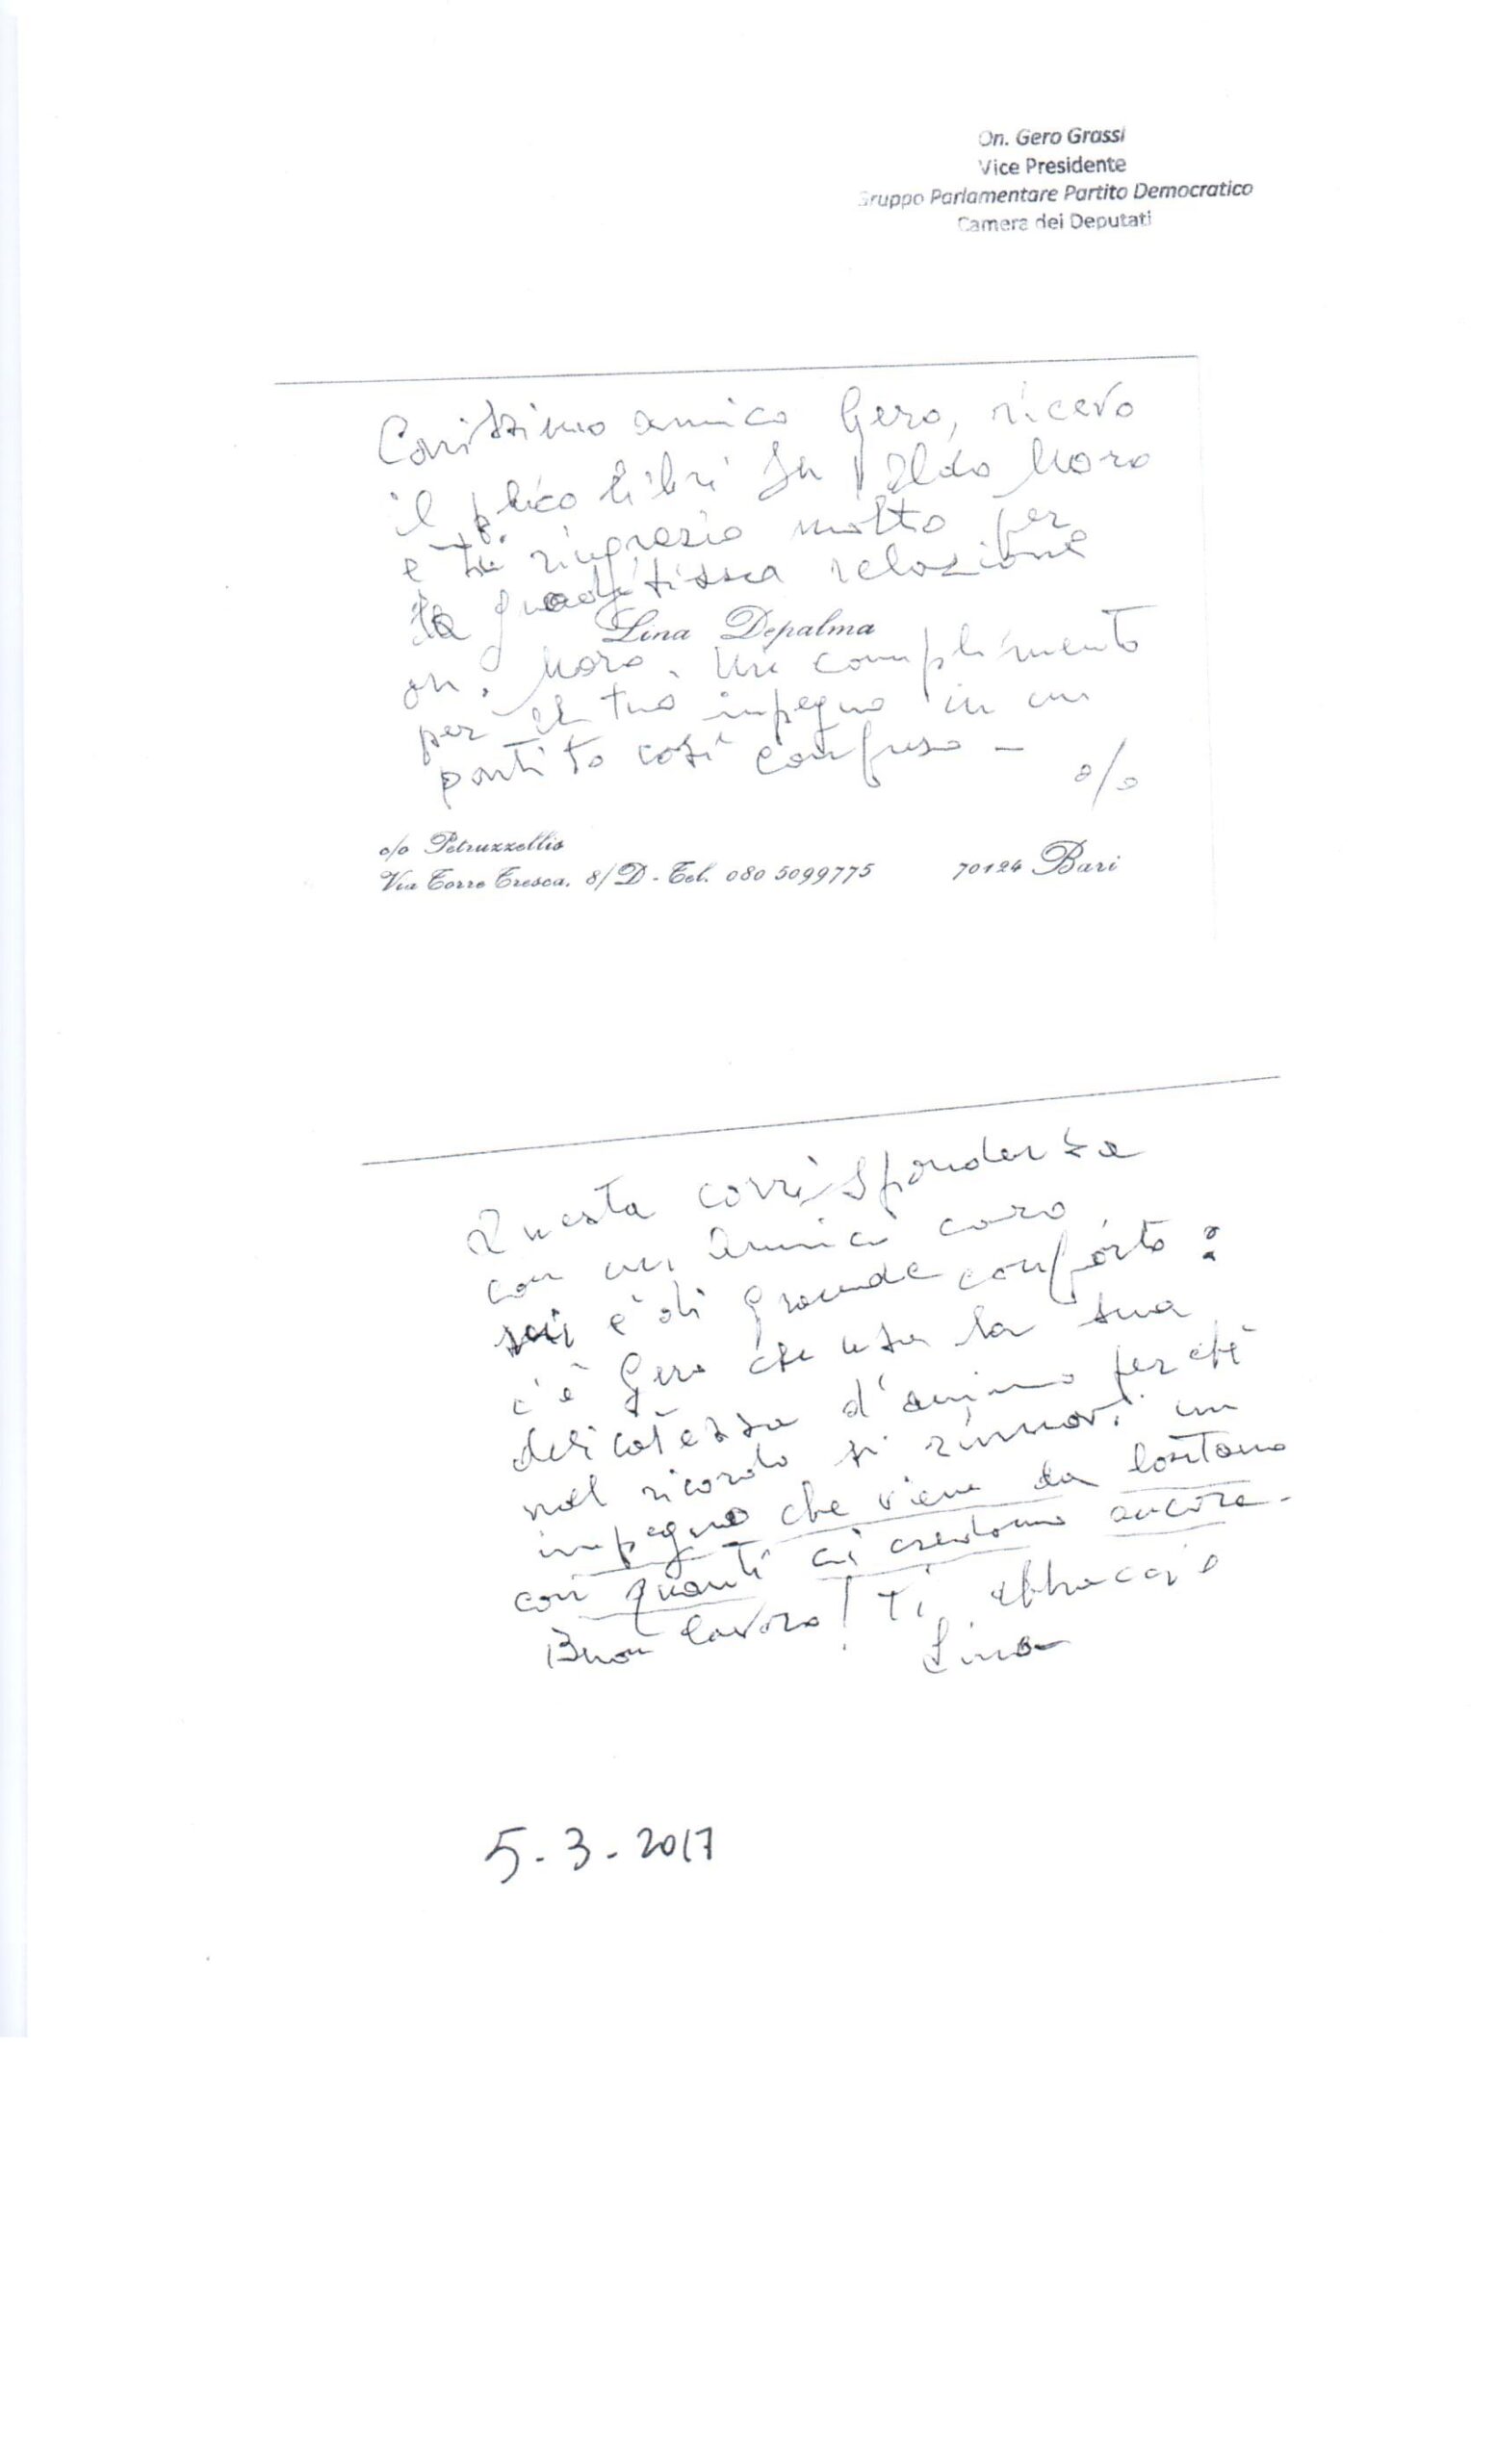 On. Gero Grassi
Vice Presidente
Gruppo Parlamentare Partito Democratico
Camera dei Deputati
Carissimo amico Gero, ricevo
il plico libri su Aldo Moro
e ti ringrazio molto per
la graditissima relazione
Lina Depalma
on. Moro. Un complimento
per il tuo impegno in un
partito così confuso -
o/o
c/o Petruzzellis
Via Torre Tresca, 8/D - Tel. 080 5099775 70124 Bari
Questa corrispondenza
con un amico caro
è di grande conforto:
c'è Gero che usa la sua
delicatezza d'animo perché
nel ricordo si rinnovi un
impegno che viene da lontano
con quanti ci credono ancora.
Buon lavoro! Ti abbraccio
Lina
5.3.2017